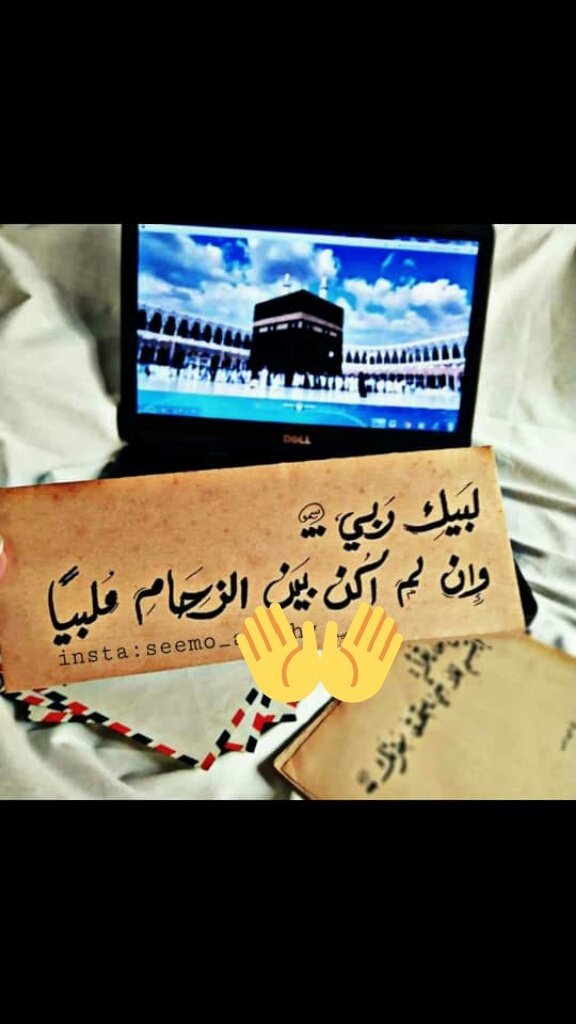 DELL
لبَيكِ رَبي ...
سمو
وَإن لم اكُن بَين الزحَام مُلبيًا
insta:seemo_a